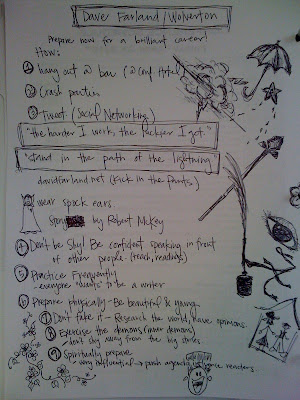 Dave Farland/Wolverton
Prepare now for a brilliant career!
How:
① hang out @ bar (@ Conf Hotel)
② Crash parties
③ Tweet (Social Networking)
"the harder I work, the luckier I get."
"Stand in the path of the lightning
davidfarland.net (Kick in the Pants.)
wear spock ears.
Story by Robert McKey
④ Don't be Shy! Be confident speaking in front
of other people. (teach, readings)
⑤ Practice Frequently
- everyone "wants" to be a writer
⑥ Prepare physically - Be beautiful & young.
⑦ Don't fake it - Research the world, have opinions.
⑧ Exercise the demons (inner demons)
- don't shy away from the big stories
⑨ Spiritually prepare
- very influential → push agenda readers.